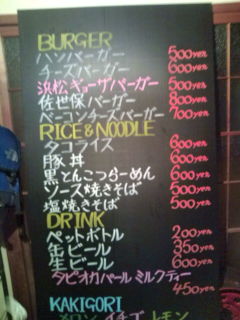 BURGER
ハンバーガー 500yen
チーズバーガー 600yen
浜松ギョーザバーガー 500yen
佐世保バーガー 800yen
ベーコンチーズバーガー 700yen
RICE & NOODLE
タコライス 600yen
豚丼 600yen
黒とんこつらーめん 600yen
ソース焼きそば 500yen
塩焼きそば 500yen
DRINK
ペットボトル 200yen
缶ビール 350yen
生ビール 600yen
タピオカパール ミルクティー
450yen
KAKIGORI
メロン イチゴ レモン